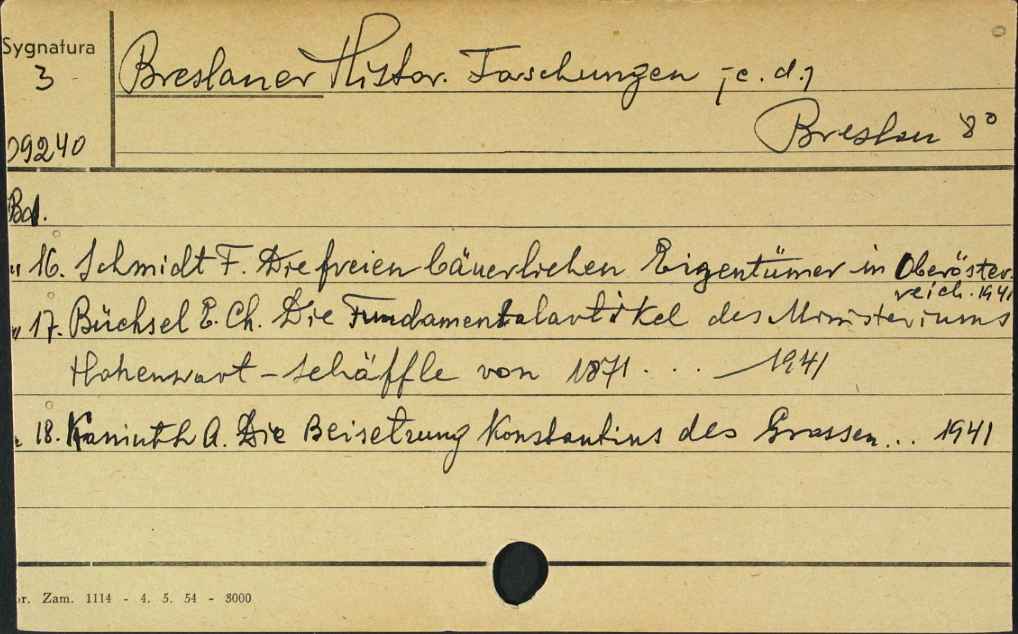 Sygnatura
3
09240
Breslauer Histor. Forschungen ; c. d. ;
Breslau 8°
Bd.
" 16. Schmidt F. Die freien bäuerlichen Eigentümer in Oberöster-
reich. 1941
" 17. Büchsel E. Ch. Die Fundamentalartikel des Ministeriums
Hohenwart - Schäffle von 1871 . . . — 1941
18. Kaniuth A. Die Beisetzung Konstantins des Grossen... 1941
r. Zam. 1114 - 4. 5. 54 - 3000